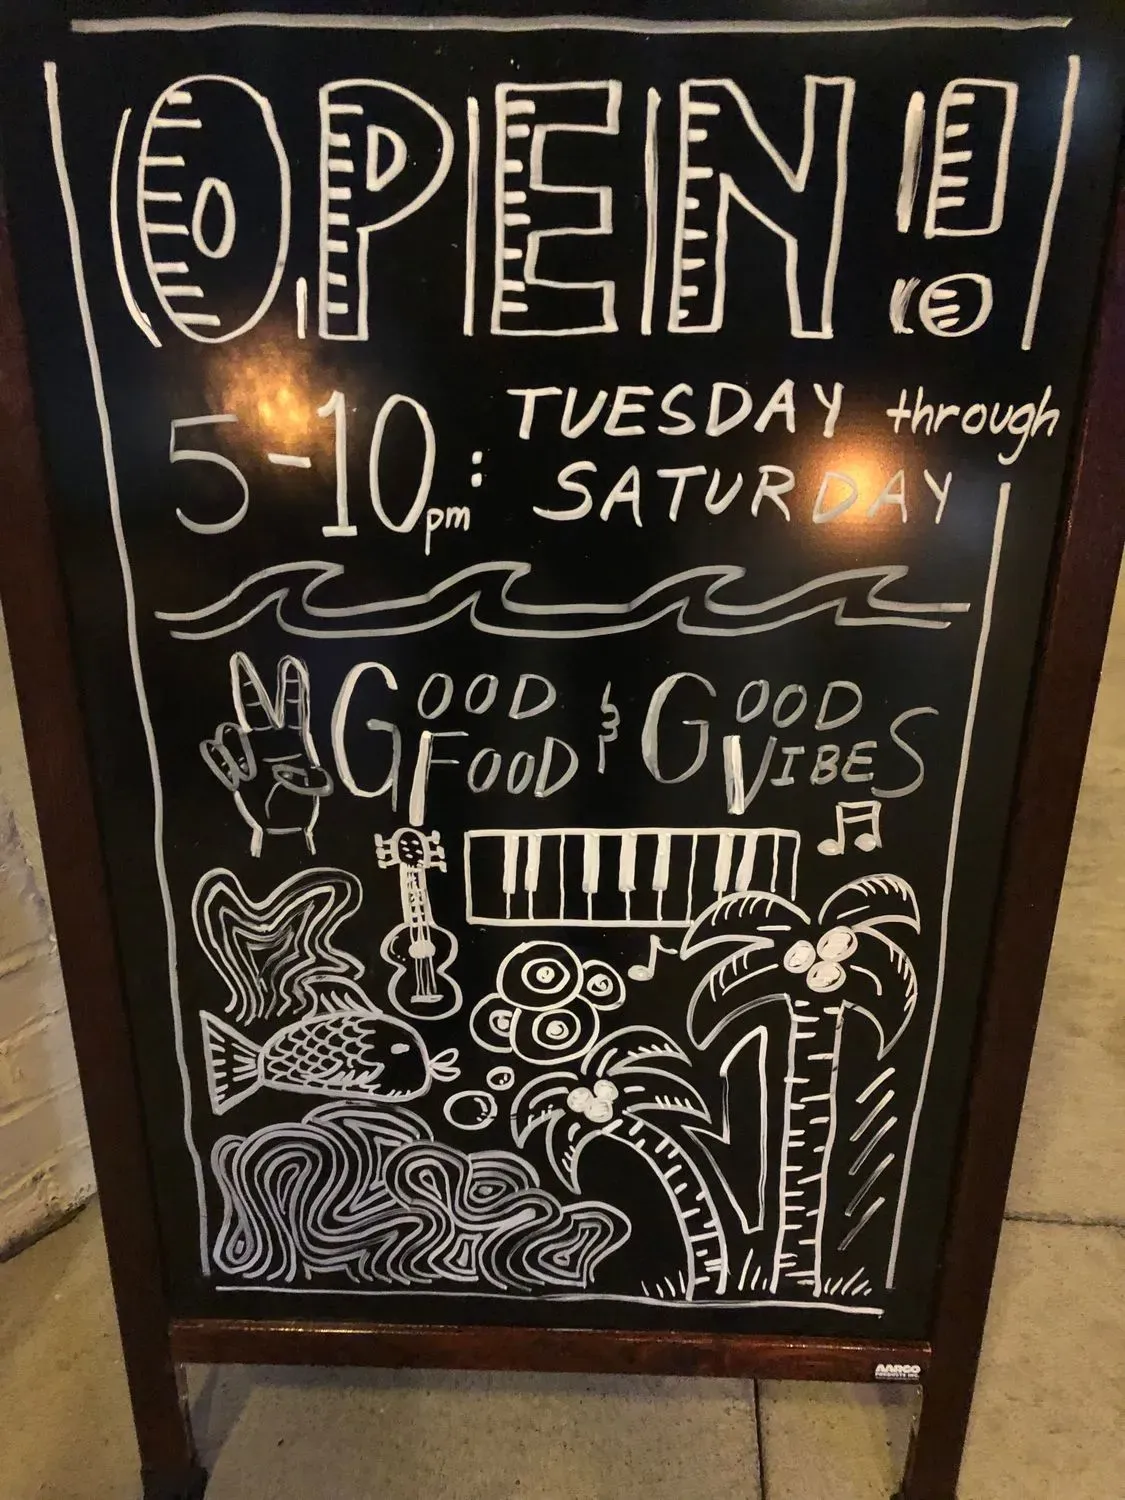 OPEN!
5-10pm: TUESDAY through
SATURDAY
GOOD FOOD & GOOD VIBES
AARCO
PRODUCTS INC.